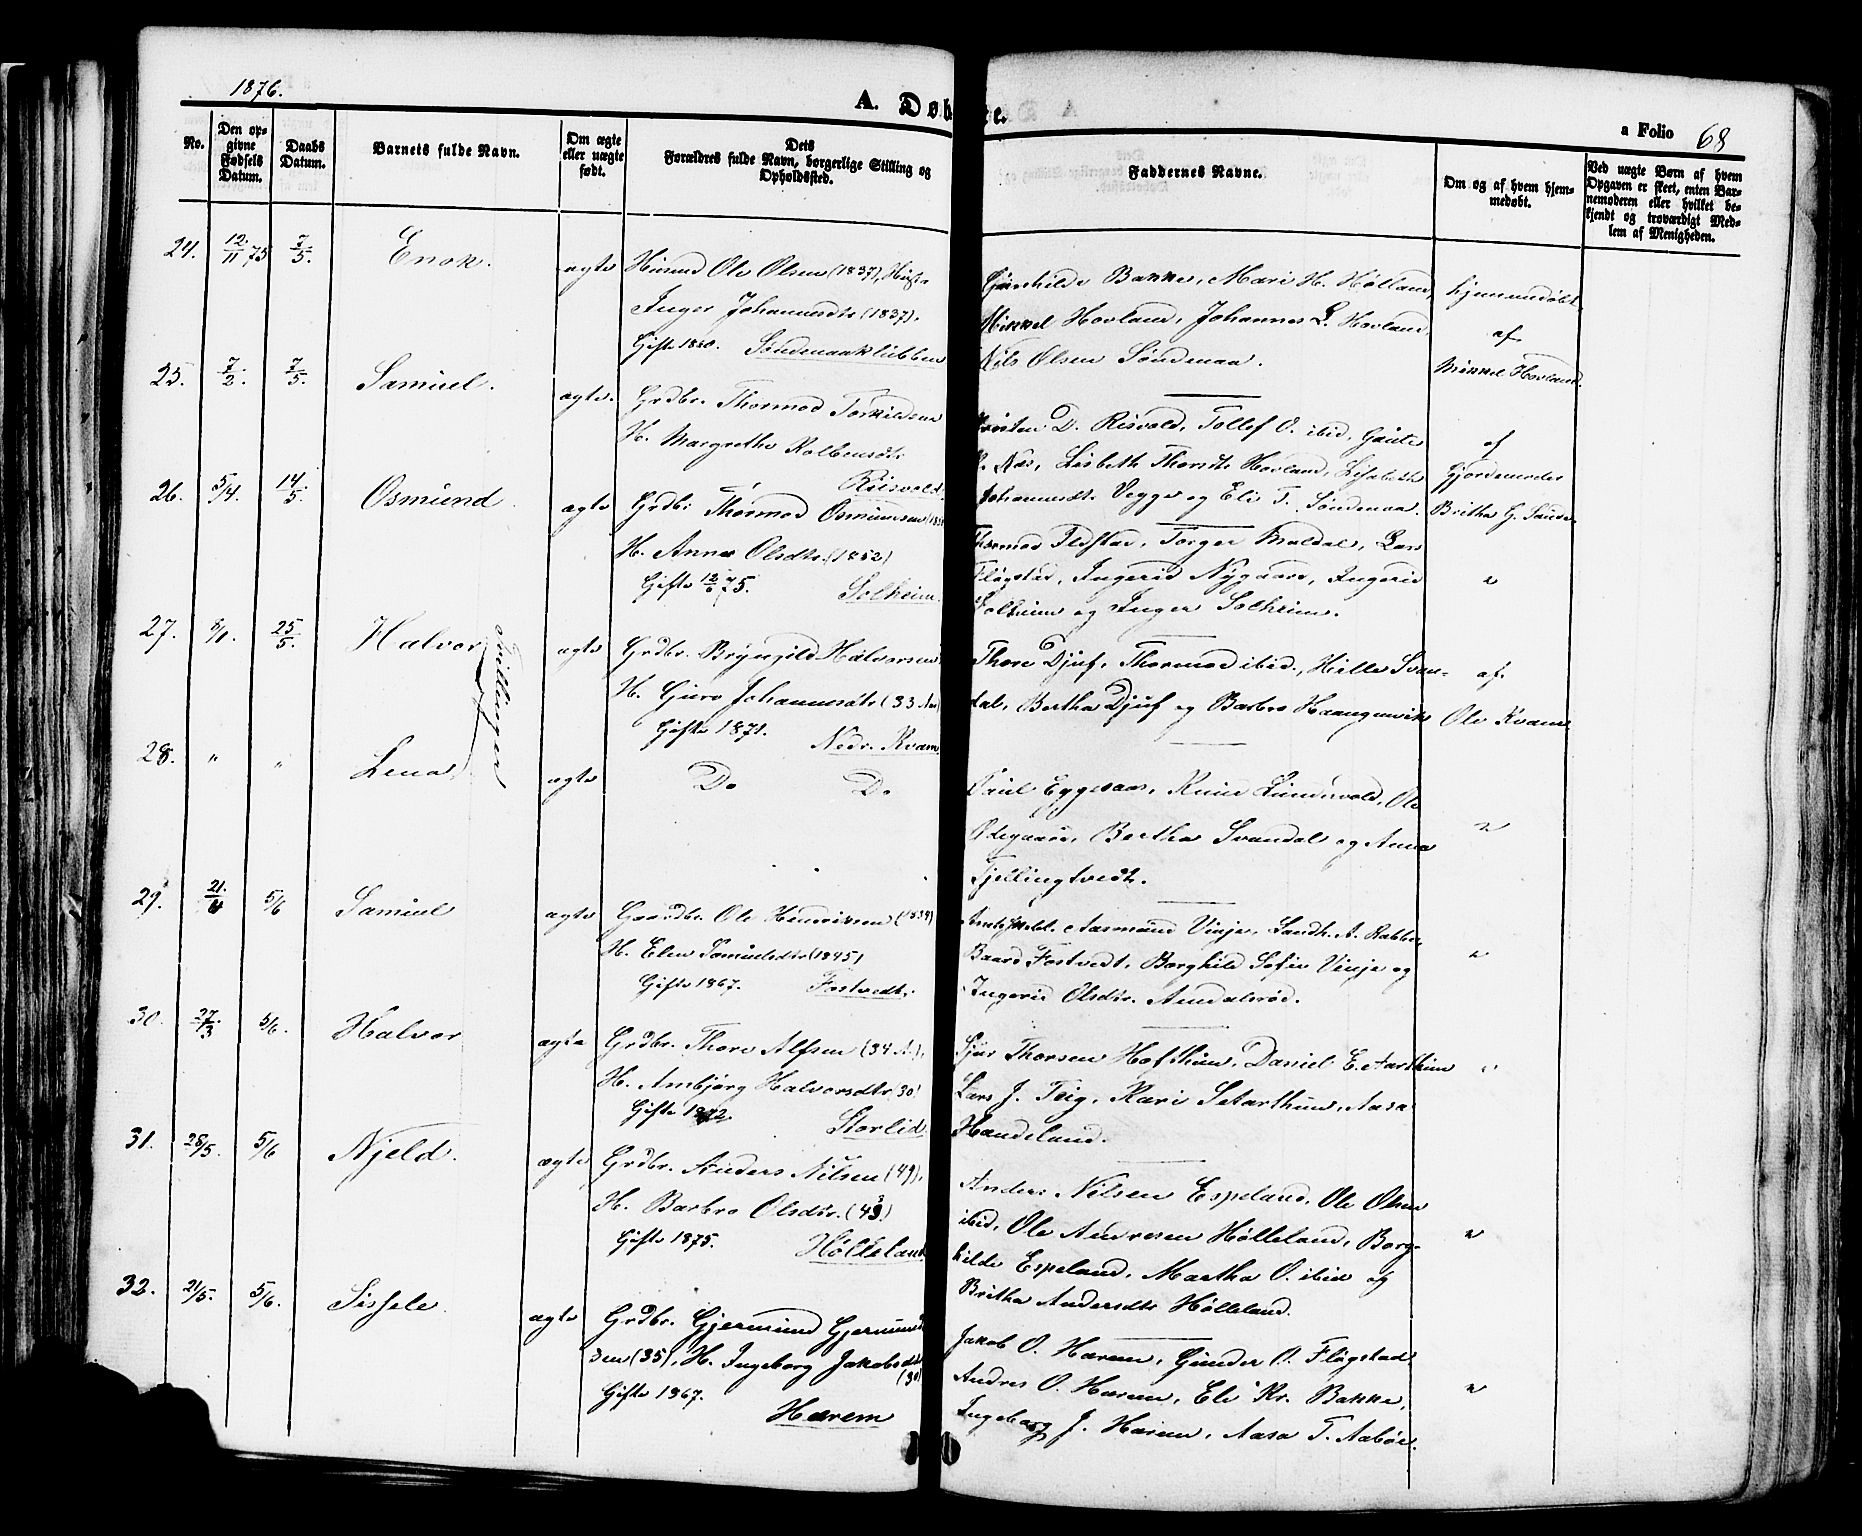 1876.
A. Døbte.
a Folio 68
No.
Den opgivne Fødsels Datum.
Daabs Datum.
Barnets fulde Navn.
Om ægte eller uægte født.
Dets Forældres fulde Navn, borgerlige Stilling og Opholdssted.
Faddernes Navne.
Om og af hvem hjemmedøbt.
Ved uægte Børn af hvem Opgaven er skeet, enten Barnemoderen eller hvilket bekjendt og troværdigt Medlem af Menigheden.
24. 12/11 75 7/5. Enok. ægte Husmd Ole Olsen (1837),
Inger Johannesdtr (1837).
Gifte 1860. Søndenaaklubben
Gunhilde Bakke, Mari H. Hølland,
Mikkel Hovland, Johannes L. Hovland
Nils Olsen Søndenaa.
hjemmedøbt
af
Mikkel Hovland.
25. 7/2. 7/5. Samuel. ægte. Grdbr. Thormod Torkildsen
H. Margrethe Kolbensdtr
Risvold.
D. Risvold, Tollef O. ibid, Gaute
Næs, Lisbeth Thorsdtr Hovland, Lisabeth
Johannesdtr. Vegge og Eli T. Søndenaa.
af
Gjordemoder
Britha G. Sande
26. 5/4. 14/5. Osmund ægte Grdbr. Thormod Osmundsen
H. Anna Olsdtr. (1852)
Gifte 12/6 75. Solheim.
Thormod Fledstad, Torger Maldal, Lars
Fløgstad, Ingerid Nygaard, Ingerid
Solheim og Inger Solheim.
"
27. 8/1. 25/5. Halvor ægte Grdbr. Bryngild Halvorsen
H. Guro Johannesdtr (33 Aar)
Gifte 1871. Nedr. Kvam.
Tvillinger
Thore Djuf, Thormod ibid., Hille Svandal,
Bertha Djuf og Barbro Haangenvik
af.
Ole Kvam
28. " " Lena ægte Do Do
Paul Eggesaas, Knud Lundevold, Ole
Ødegaard, Bertha Svandal og Anna
Fjellingtvedt.
"
29. 21/4 5/6 Samuel ægte Gaardbr. Ole Henriksen (1839)
H. Elen Samuelsdtr (1845)
Gifte 1867. Fostvedt.
Aasmund Vinje, Landh. A. Rabbe,
Baard Fostvedt, Borghild Sofie Vinje og
Ingerid Olsdtr. Amdalsrød.
"
30. 27/3 5/6. Halvor ægte Grdbr. Thore Alfsen (34 A.),
H. Ambjørg Halvorsdtr (30)
Gifte 1872. Storlid.
Sjur Thorsen Hofthun, Daniel E. Aarthun
Lars J. Teig, Kari S. Aarthun, Aasa
Handeland.
"
31. 28/5. 5/6 Njeld. ægte Grdbr. Anders Nilsen (49),
H. Barbro Olsdtr. (43)
Gifte 1875. Hølleland
Anders Nilsen Espeland, Ole Olsen
ibid, Ole Andresen Hølleland, Borghilde
Espeland, Martha O. ibid og
Britha Andersdtr Hølleland.
"
32. 21/5. 5/6. Sissele. ægte Grdbr. Gjermund Gjermundsen
(35), H. Ingeborg Jakobsdtr (30)
Gifte 1867.
Harem
Jakob O. Harem, Gunder O. Fløgstad
Andres O. Harem, Eli Kr. Bakke,
Ingeborg J. Harem, Aasa T. Aabøe.
"